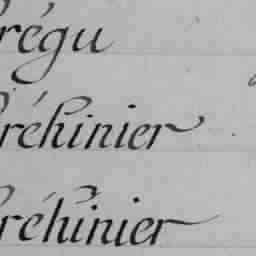 régu
réhinier
réhinier